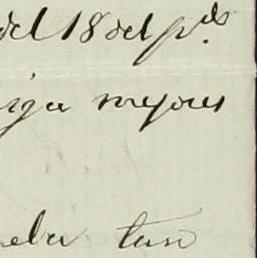 del 18 del p.do
iga mejores
eba tan